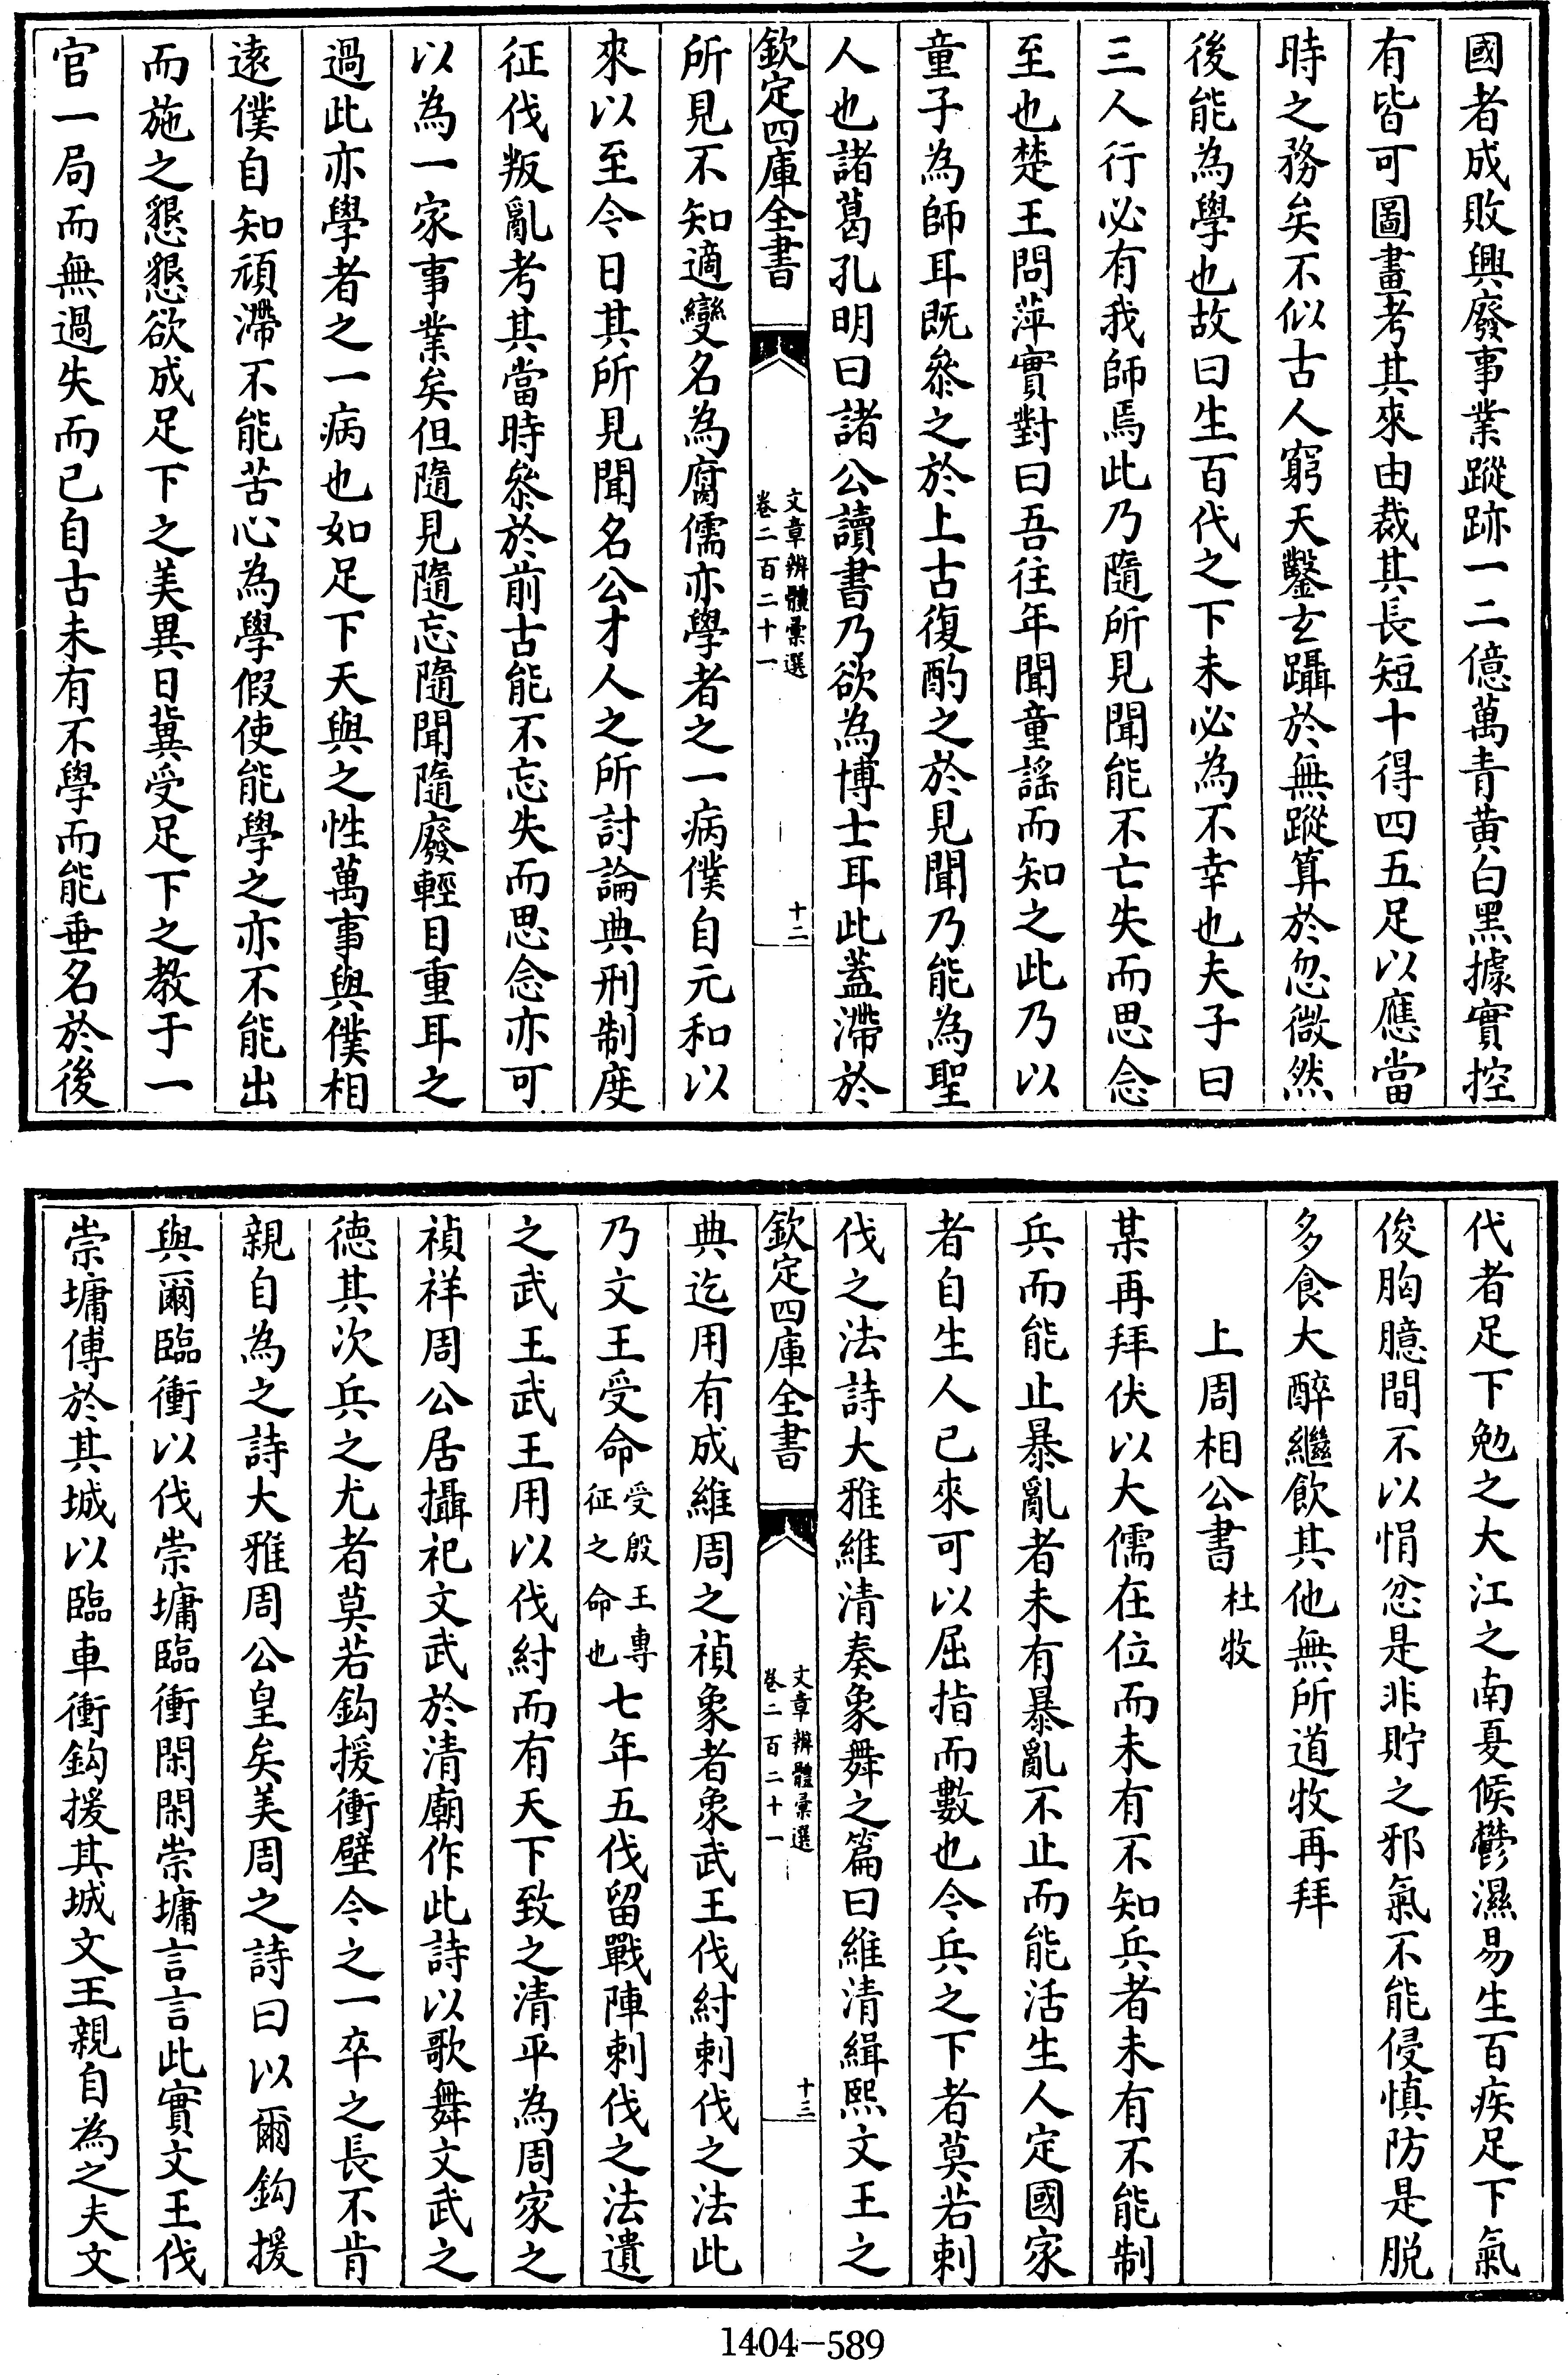 國者成敗興廢事業蹤跡一二億萬青黃白黑據實控
有皆可圖畫考其來由裁其長短十得四五足以應當
時之務矣不似古人窮天鑿玄躡於無蹤算於忽微然
後能為學也故曰生百代之下未必為不幸也夫子曰
三人行必有我師焉此乃隨所見聞能不亡失而思念
至也楚王問萍實對曰吾往年聞童謠而知之此乃以
童子為師耳既叅之於上古復酌之於見聞乃能為聖
人也諸葛孔明曰諸公讀書乃欲為博士耳此蓋滯於
欽定四庫全書
文章辨體彙選
卷二百二十一
十二
所見不知適變名為腐儒亦學者之一病僕自元和以
來以至今日其所見聞名公才人之所討論典刑制度
征伐叛亂考其當時叅於前古能不忘失而思念亦可
以為一家事業矣但隨見隨忘隨聞隨廢輕目重耳之
過此亦學者之一病也如足下天與之性萬事與僕相
遠僕自知頑滯不能苦心為學假使能學之亦不能出
而施之懇懇欲成足下之美異日冀受足下之教于一
官一局而無過失而已自古未有不學而能垂名於後
代者足下勉之大江之南夏候鬱濕易生百疾足下氣
俊胸臆間不以悁忿是非貯之邪氣不能侵慎防是脱
多食大醉繼飲其他無所道牧再拜
上周相公書 杜牧
某再拜伏以大儒在位而未有不知兵者未有不能制
兵而能止暴亂者未有暴亂不止而能活生人定國家
者自生人已來可以屈指而數也今兵之下者莫若刺
伐之法詩大雅維清奏象舞之篇曰維清緝熙文王之
欽定四庫全書
文章辨體彙選
卷二百二十一
十三
典迄用有成維周之禎象者象武王伐紂刺伐之法此
乃文王受命受殷王專征之命也七年五伐留戰陣刺伐之法遺
之武王武王用以伐紂而有天下致之清平為周家之
禎祥周公居攝祀文武於清廟作此詩以歌舞文武之
德其次兵之尤者莫若鈎援衝壁今之一卒之長不肯
親自為之詩大雅周公皇矣美周之詩曰以爾鈎援
與爾臨衝以伐崇墉臨衝閑閑崇墉言言此實文王伐
崇墉傅於其城以臨車衝鈎援其城文王親自為之夫文
1404-589